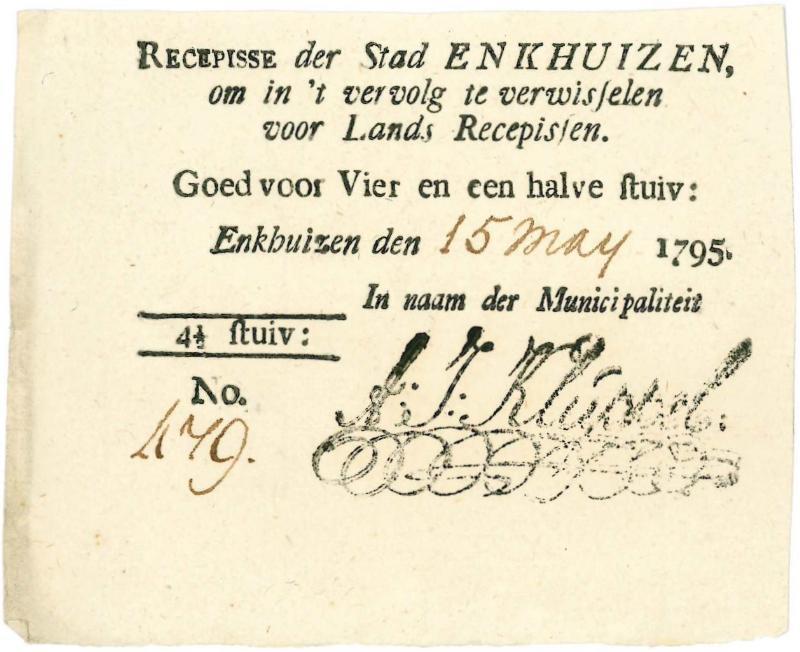 RECEPISSE der Stad ENKHUIZEN,
om in 't vervolg te verwisſelen
voor Lands Recepisſen.
Goed voor Vier en een halve ſtuiv:
Enkhuizen den 15 May 1795.
In naam der Municipaliteit
4½ ſtuiv:
No.
479.